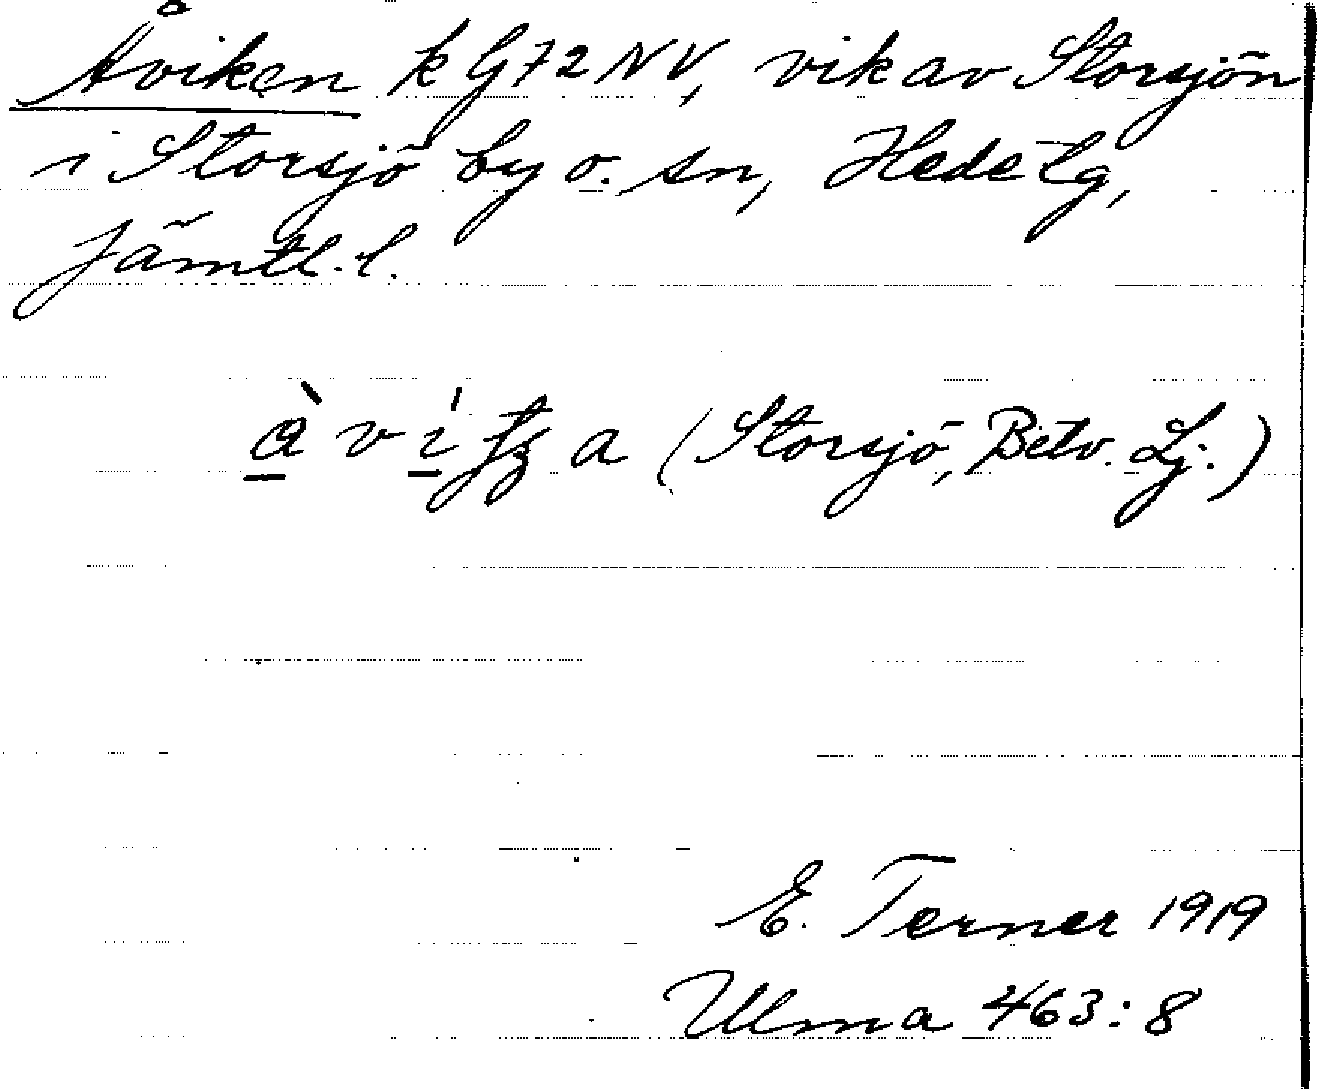 Åviken k G72NV, vik av Storsjön
i Storsjö by o. sn, Hede lg,
Jämtl. l.
a (Storsjö, Betv. Lj.)
E. Terner 1919
Ulma 463:8